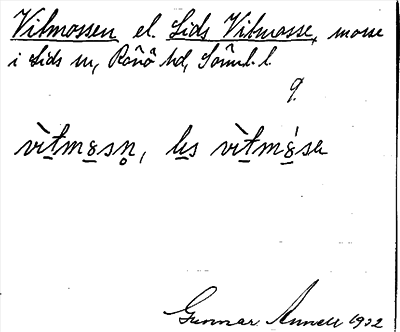 Vitmossen el. Lids Vitmosse, mosse
i Lids sn, Rönö hd, Söml. l.
9.
vìtmosn, lis vìtmósa
Gunnar Annell 1932